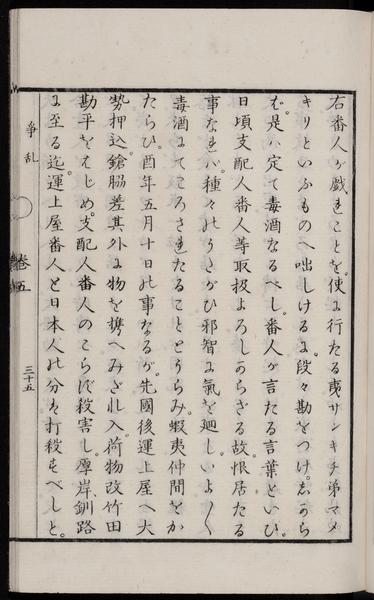 右番人が戯れことを。使に行たる夷サンキチ弟マメ
キリといふものへ咄しけるに。段々勘をつけ。しからち
ば。是ハ定て毒酒なるべし。番人が言たる言葉といひ。
日頃支配人番人等取扱よろしからざる故。恨居たる
事なれバ。種々のうたがひ邪智に氣を廻し。いよ〳〵
毒酒にてころされたることとうらみ。蝦夷仲間をか
たらひ。酉年五月十日の事なるが。先國後運上屋へ大
勢押込。鎗脇差其外に物を携へみだれ入。荷物改竹田
勘平をはじめ。支配人番人のこらず殺害し。厚岸、釧路
に至る迄。運上屋番人と日本人の分は打殺すべしと。
爭乱
卷五
三十五